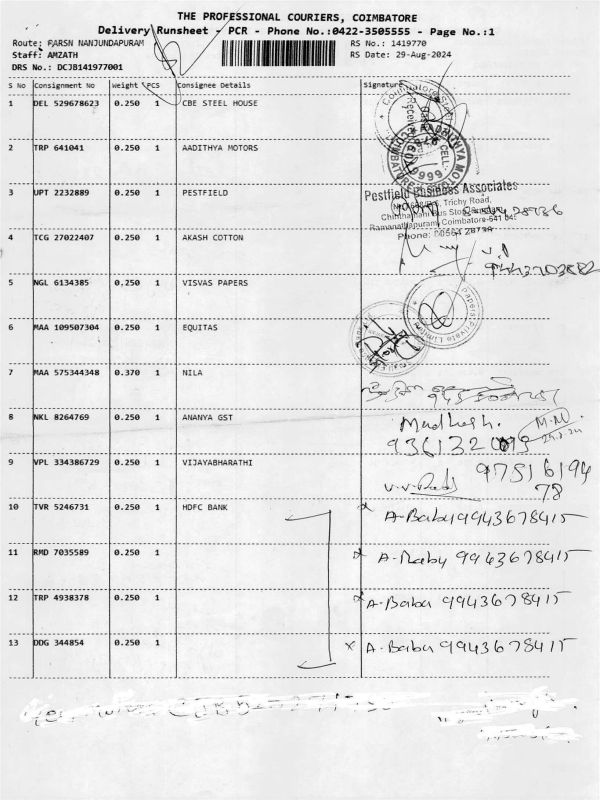 THE PROFESSIONAL COURIERS, COIMBATORE
Delivery Runsheet - PCR - Phone No.:0422-3505555 - Page No.:1
Route: FARSN NANJUNDAPURAM RS No.: 1419770
Staff: AMZATH RS Date: 29-Aug-2024
DRS No.: DCJB141977001
S No Consignment No Weight PCS Consignee Details Signature
1 DEL 529678623 0.250 1 CBE STEEL HOUSE
2 TRP 641041 0.250 1 AADITHYA MOTORS
3 UPT 2232889 0.250 1 PESTFIELD
Pestfield Business Associates
Trichy Road,
Bus Stop
Ramanathapuram, Coimbatore-641 045
Phone:
4 TCG 27022407 0.250 1 AKASH COTTON
5 NGL 6134385 0.250 1 VISVAS PAPERS
Papers Private Limited
6 MAA 109507304 0.250 1 EQUITAS
7 MAA 575344348 0.370 1 NILA
8 NKL 8264769 0.250 1 ANANYA GST Madhesh.
9 VPL 334386729 0.250 1 VIJAYABHARATHI 97516194
78
10 TVR 5246731 0.250 1 HDFC BANK x A-Babu 9943678415
11 RMD 7035589 0.250 1 x A-Baby 9943678415
12 TRP 4938378 0.250 1 x A-Babu 9943678415
13 DDG 344854 0.250 1 x A-Babu 9943678415